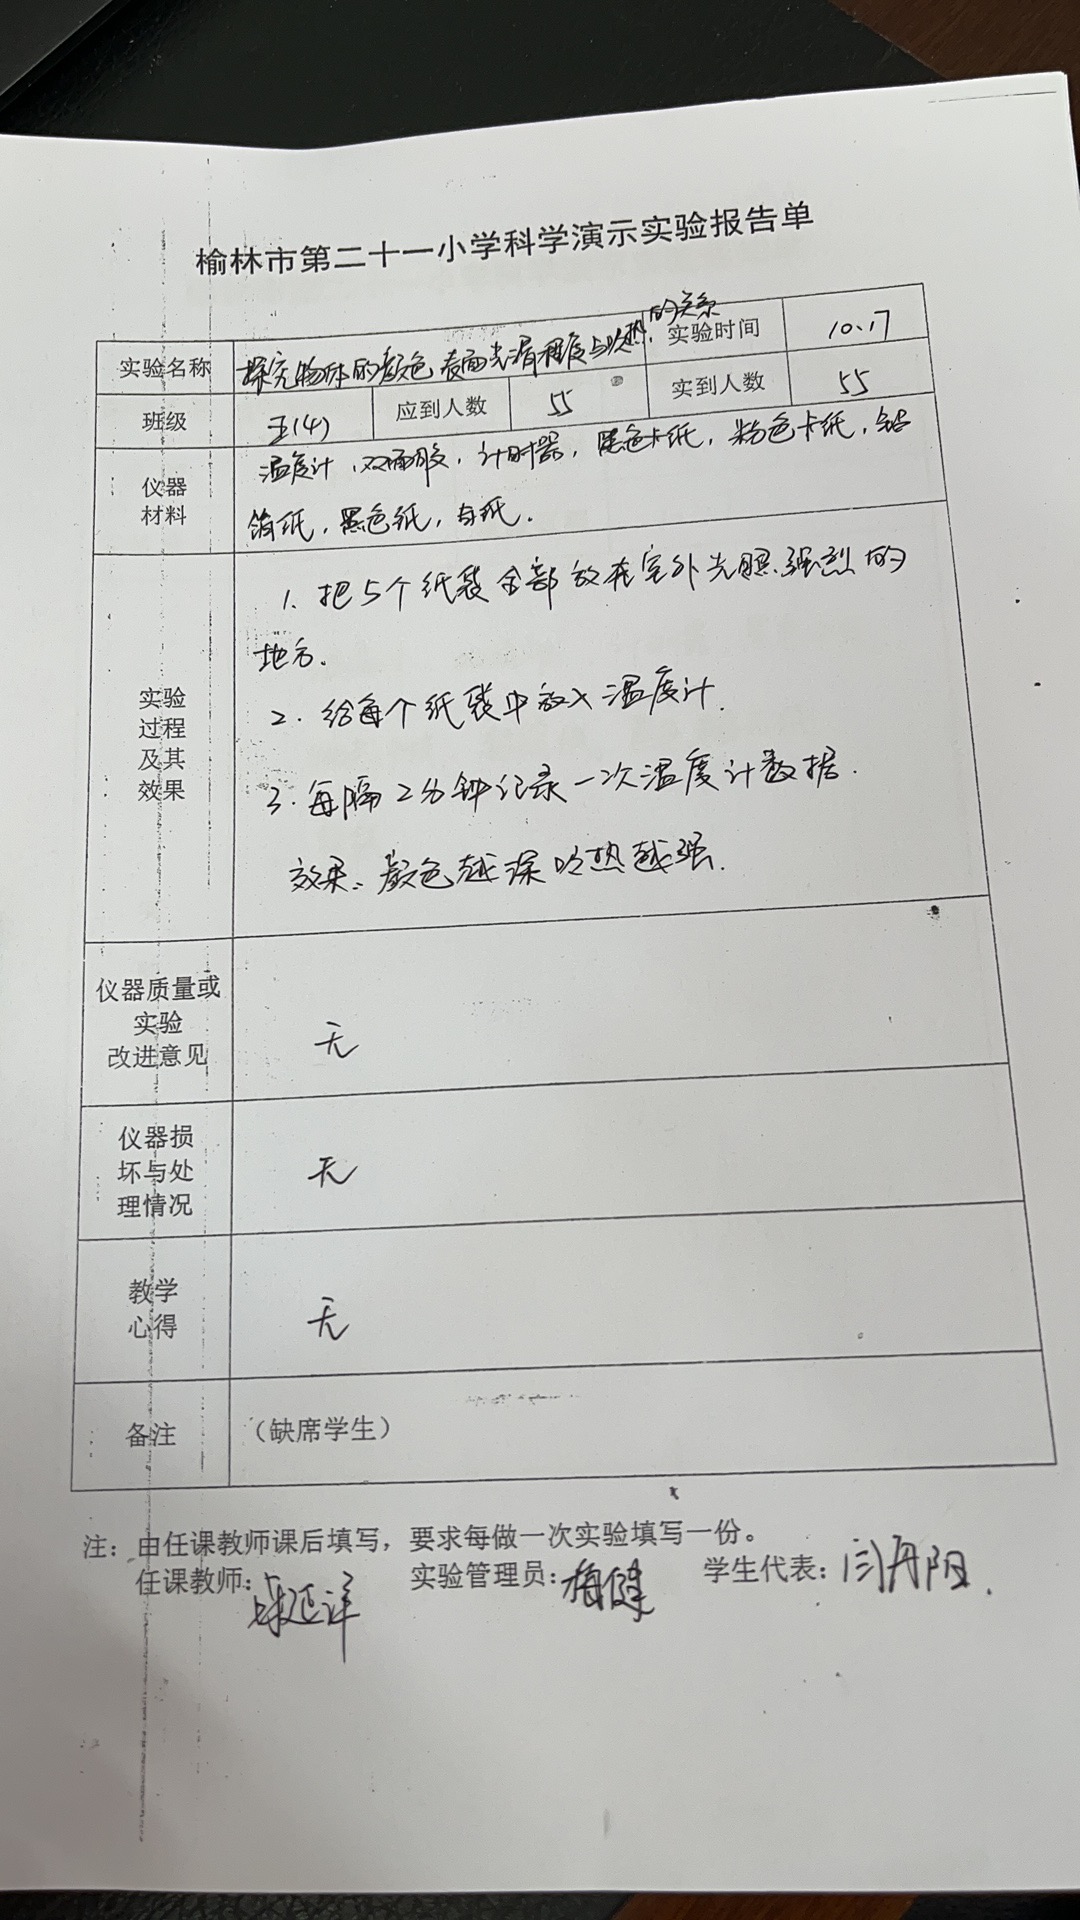 榆林市第二十一小学科学演示实验报告单
实验名称 探究物体的颜色、表面光滑程度与吸热的关系 实验时间 10.17
班级 五(4) 应到人数 55 实到人数 55
仪器
材料
温度计、双面胶，计时器，黑色卡纸，粉色卡纸，铝
箔纸，黑色纸，白纸.
实验
过程
及其
效果
1. 把5个纸袋全部放在室外光照强烈的
地方.
2. 给每个纸袋中放入温度计.
3. 每隔2分钟记录一次温度计数据.
效果：颜色越深吸热越强.
仪器质量或
实验
改进意见
无
仪器损
坏与处
理情况
无
教学
心得
无
备注 （缺席学生）
注：由任课教师课后填写，要求每做一次实验填写一份。
任课教师： 实验管理员： 学生代表：闫丹阳.